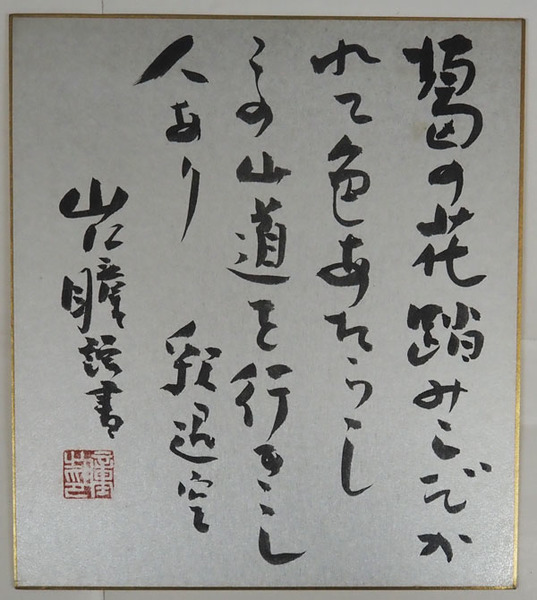 葛の花踏みしだか
れて色あたらし
この山道を行きし
人あり 釈迢空
山口瞳謹書